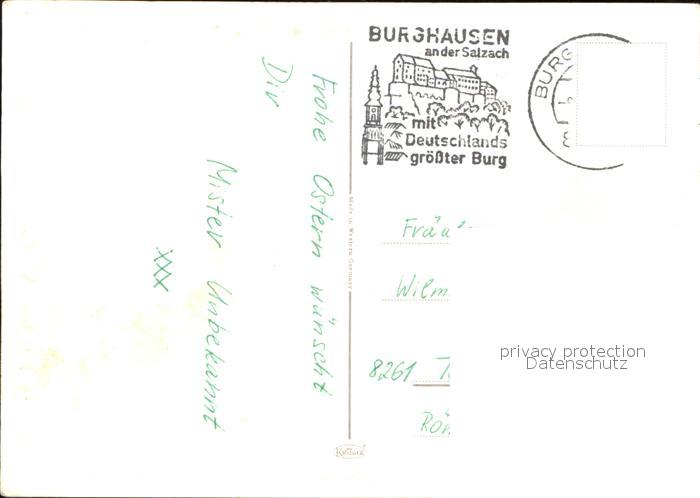 Frohe Ostern wünscht
Dir
Mister Unbekannt
xxx
BURGHAUSEN
an der Salzach
mit
Deutschlands
größter Burg
BURG
Made in Western Germany
Wilm
8261 T
Rön
privacy protection
Datenschutz
Krüger